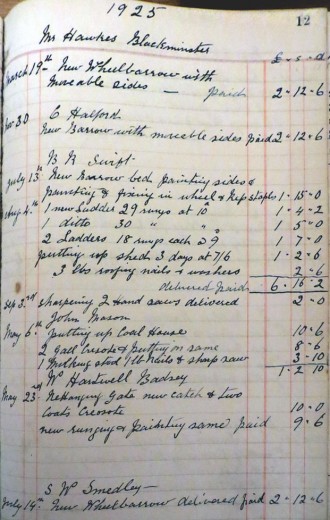 1925
12
Mr Hawkes Blackminster
£ - s - d
March 19th New Wheelbarrow with
Moveable sides — paid 2 - 12 - 6
Nov 30 C Halford
New Barrow with moveable sides paid 2 - 12 - 6
Swift
July 13th New Barrow bed painting sides &
painting & fixing in wheel & Repstopls 1 - 15 - 0
Aug 4th 1 new Ladder 29 rungs at 10 1 - 4 - 2
1 ditto 30 " " 1 - 5 - 0
2 Ladders 18 rungs each 29 1 - 7 - 0
putting up shed 3 days at 7/6 1 - 2 - 6
3 lbs roofing nails & washers 2 - 6
delivered paid 6 - 16 - 2
Sep 3rd sharpening 2 Hand saws delivered 2 - 0
John Mason
May 6th putting up Coal House 10 - 6
2 gall Cresote & putting on same 8 - 6
1 nails & sharp saw 3 - 10
1 - 2 - 10
Wm Hartwell Badsey
May 23rd Rehanging Gate new catch & two
Coats Cresote 10 - 0
new runging & painting same paid 9 - 6
S Wm Smedley
July 14th New Wheelbarrow delivered paid 2 - 12 - 6